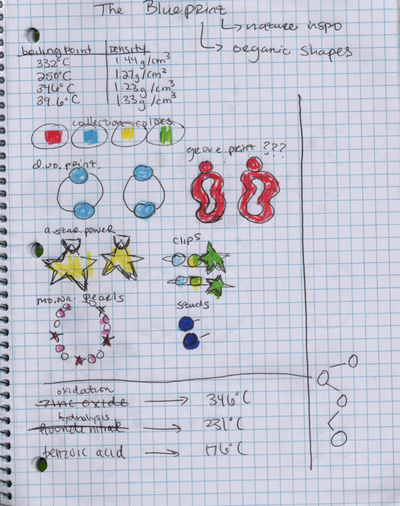 The Blueprint
↳ nature inspo
↳ organic shapes
boiling point | density
332°C | 1.44 g/cm³
250°C | 1.27 g/cm³
346°C | 1.23 g/cm³
39.6°C | 1.33 g/cm³
collection colors
duo. print
george print ???
a star power
clips
mo.na. pearls
studs
oxidation
zinc oxide → 346°C
hydrolysis
fluoride nitrate → 231°C
benzoic acid → 176°C